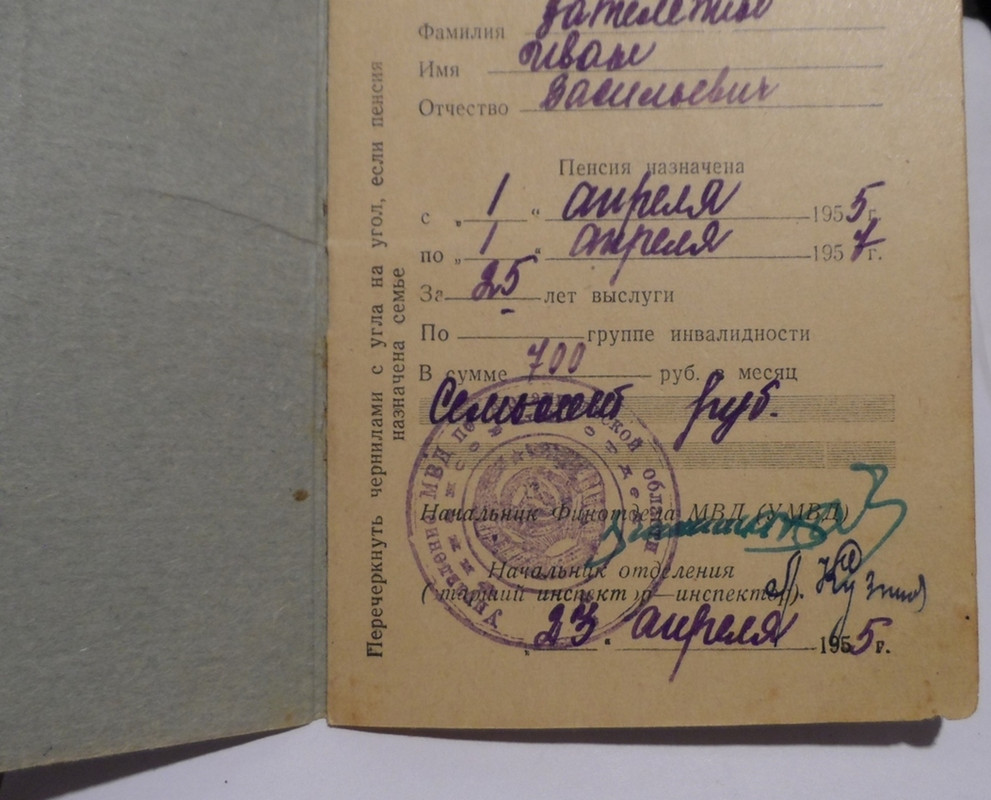 Фамилия
Имя Иван
Отчество Васильевич
Пенсия назначена
с „ 1 “ апреля 1955 г.
по „ 1 “ апреля 1957 г.
За 25 лет выслуги
По группе инвалидности
В сумме 700 руб. в месяц
Семьсот руб.
Начальник Финотдела МВД (УМВД)
Начальник отделения
(старший инспектор—инспектор)
„ 23 “ апреля 1955 г.
Перечеркнуть чернилами с угла на угол, если пенсия
назначена семье
Управление МВД по ской области